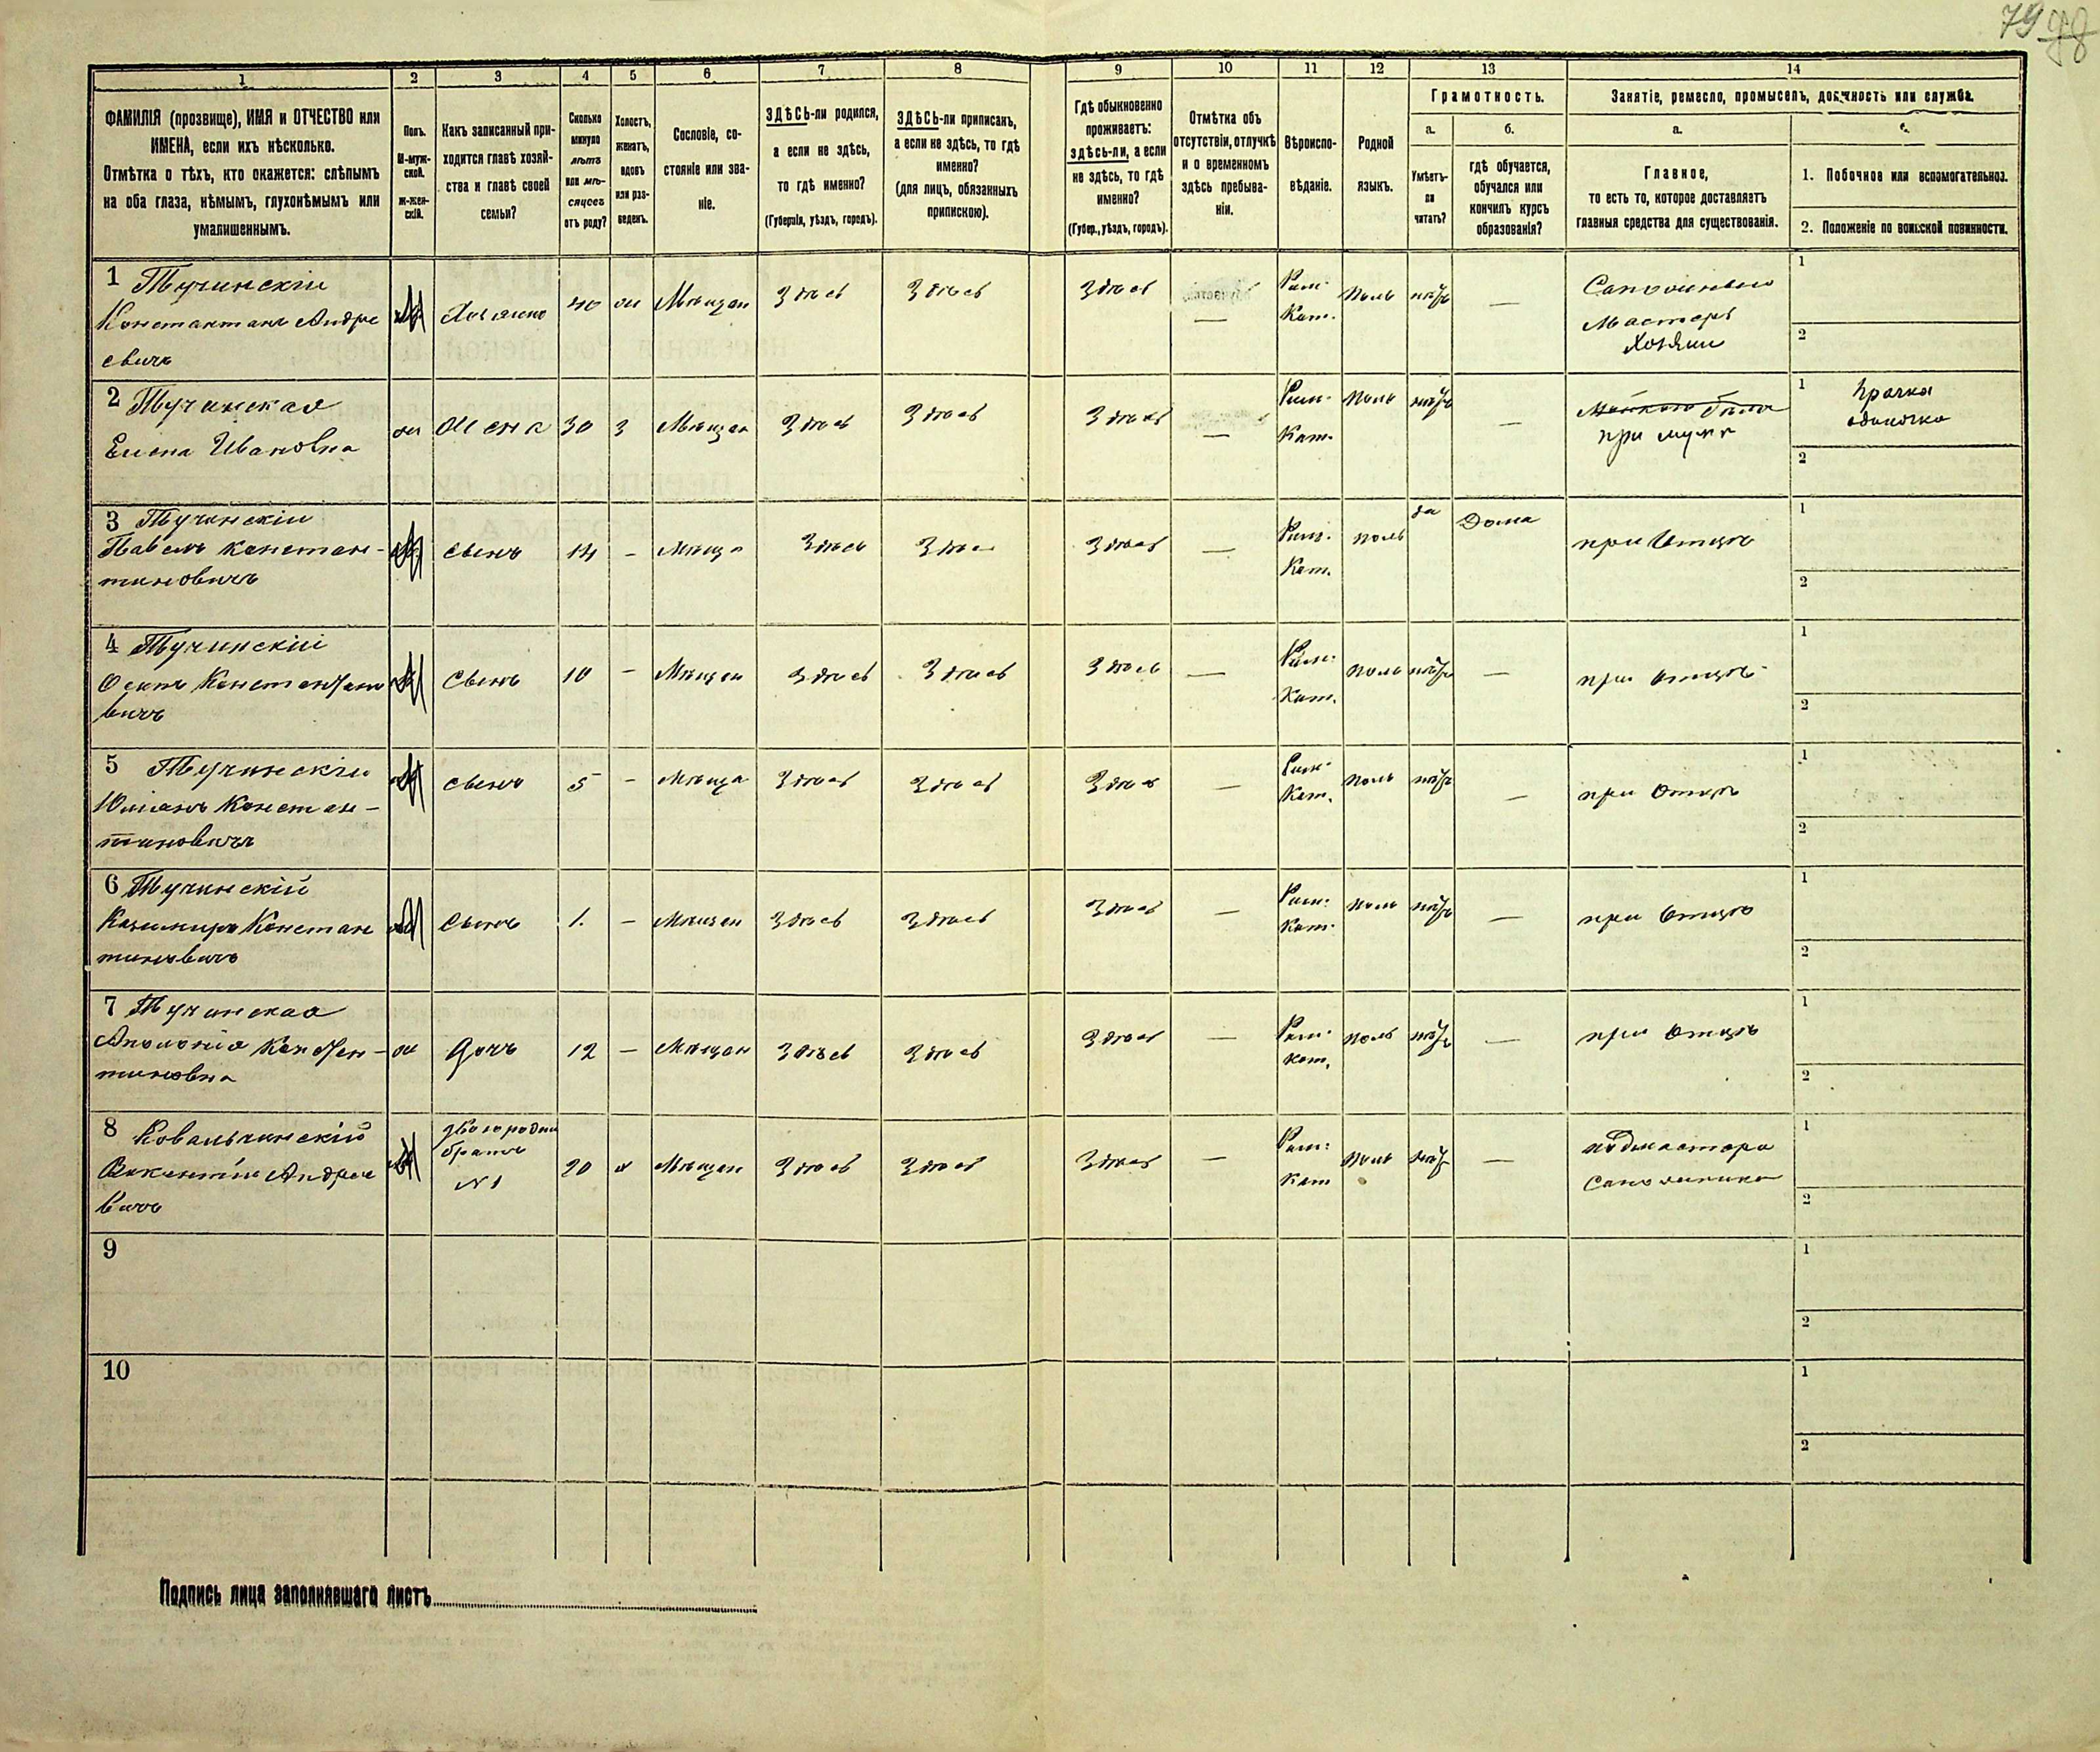 79 98
1 2 3 4 5 6 7 8 9 10 11 12 13 14
ФАМИЛІЯ (прозвище), ИМЯ и ОТЧЕСТВО или
ИМЕНА, если ихъ нѣсколько.
Отмѣтка о тѣхъ, кто окажется: слѣпымъ
на оба глаза, нѣмымъ, глухонѣмымъ или
умалишеннымъ.
Полъ.
М-муж-
ской.
ж-жен-
скій.
Какъ записанный при-
ходится главѣ хозяй-
ства и главѣ своей
семьи?
Сколько
минуло
лѣтъ
или мѣ-
сяцевъ
отъ роду?
Холостъ,
женатъ,
вдовъ
или раз-
веденъ.
Сословіе, со-
стояніе или зва-
ніе.
ЗДѢСЬ-ли родился,
а если не здѣсь,
то гдѣ именно?
(Губернія, уѣздъ, городъ).
ЗДѢСЬ-ли приписанъ,
а если не здѣсь, то гдѣ
именно?
(для лицъ, обязанныхъ
припискою).
Гдѣ обыкновенно
проживаетъ:
здѣсь-ли, а если
не здѣсь, то гдѣ
именно?
(Губер., уѣздъ, городъ).
Отмѣтка объ
отсутствіи, отлучкѣ
и о временномъ
здѣсь пребыва-
ніи.
Вѣроиспо-
вѣданіе.
Родной
языкъ.
Грамотность.
а.
Умѣетъ-
ли
читать?
б.
гдѣ обучается,
обучался или
кончилъ курсъ
образованія?
Занятіе, ремесло, промыселъ, должность или служба.
а.
Главное,
то есть то, которое доставляетъ
главныя средства для существованія.
1. Побочное или вспомогательное.
2. Положеніе по воинской повинности.
1 Тучинскій
Константинъ Андре
евичъ
М Хозяинъ 40 Мѣщан Здѣсь Здѣсь Здѣсь —
Рим.
Кат.
Поль нѣтъ —
Сапожный
Мастеръ
Хозяин
1
2
2 Тучинская
Елена Ивановна
ж Жена 30 З Мѣщан Здѣсь Здѣсь Здѣсь —
Рим.
Кат.
Поль нѣтъ —
при мужѣ
1 Прачка
одиночка
2
3 Тучинскій
Павелъ Констан-
тиновичъ
М сынъ 14 - Мѣща Здѣсь Здѣсь Здѣсь —
Рим.
Кат.
поль да Дома
при Отцѣ
1
2
4 Тучинскій
Осипъ Константино
вичъ
М Сынъ 10 - Мѣщан Здѣсь Здѣсь Здѣсь —
Рим.
Кат.
поль нѣтъ —
при отцѣ
1
2
5 Тучинскій
Юліанъ Констан-
тиновичъ
М сынъ 5 - Мѣща Здѣсь Здѣсь Здѣсь —
Рим.
Кат.
поль нѣтъ —
при Отцѣ
1
2
6 Тучинскій
Казимиръ Констан
тиновичъ
М Сынъ 1. - Мѣщан Здѣсь Здѣсь Здѣсь —
Рим.
Кат.
поль нѣтъ —
при Отцѣ
1
2
7 Тучинская
Аполонія Констан-
тиновна
ж Дочь 12 - Мѣщан Здѣсь Здѣсь Здѣсь —
Рим.
Кат.
поль нѣтъ —
при Отцѣ
1
2
8 Ковальчинскій
Викентій Андрее
вичъ
М
двоюродни
братъ
№1
20 х Мѣщан Здѣсь Здѣсь Здѣсь —
Рим.
Кат
поль нѣтъ —
подмастера
Сапожника
1
2
9
1
2
10
1
2
Подпись лица заполнявшаго листъ